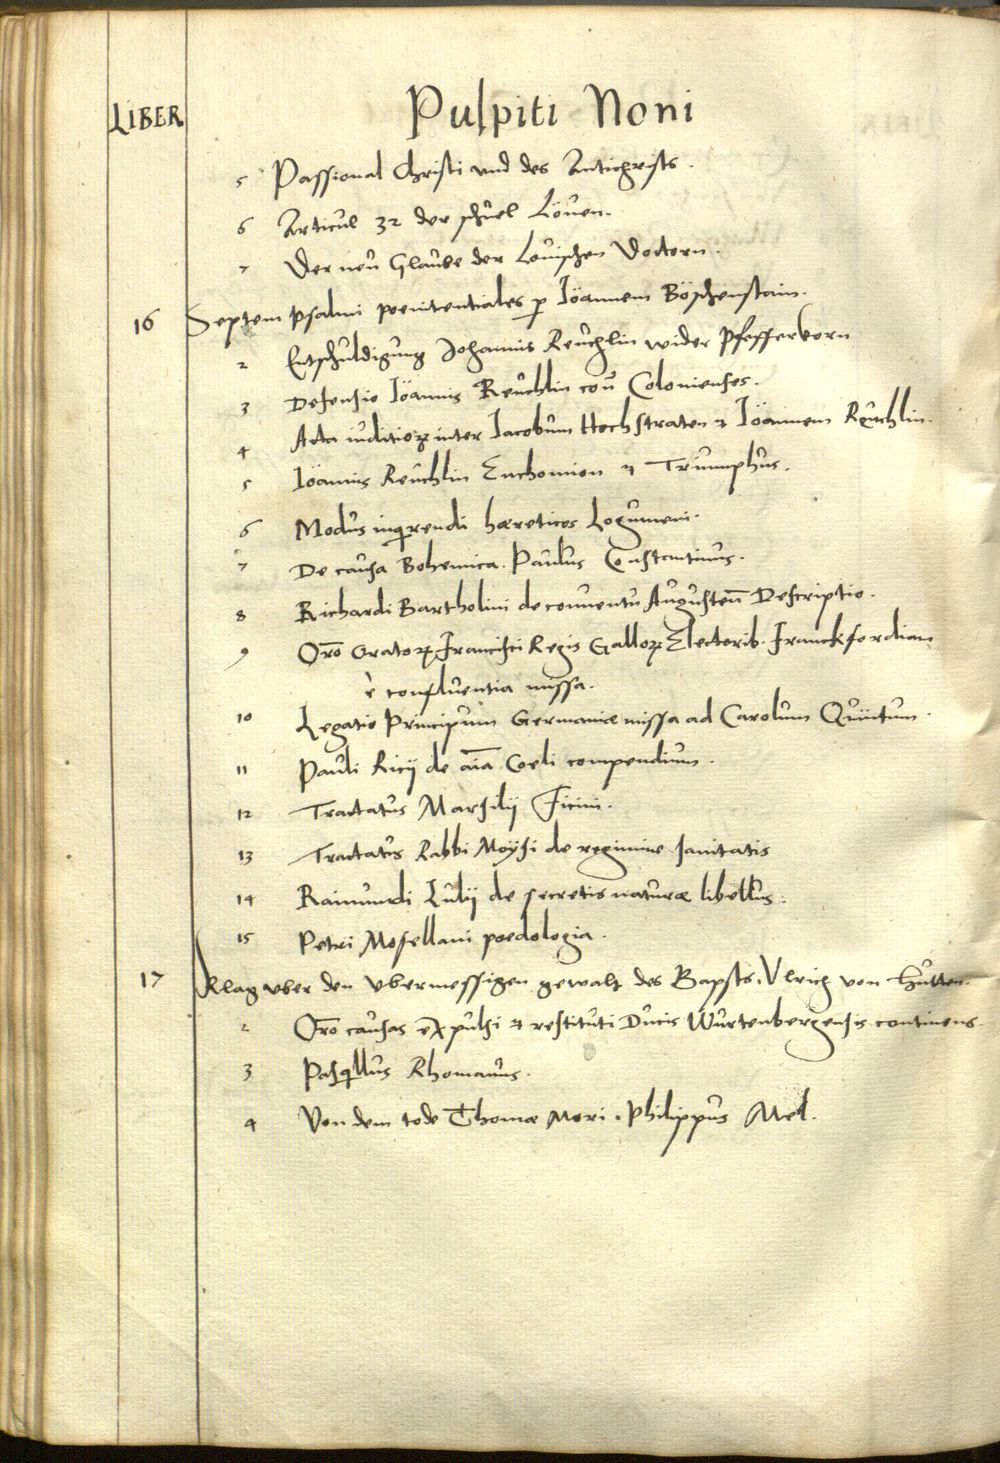 LIBER Pulpiti Noni
5 Passional Christi und des Antichrists.
6 Articul 32 der schuel Löuen.
7 Der neu Glaube der Louischen Doctorn.
16 Septem psalmi poenitentiales p Ioannem Böschenstain.
2 Entschuldigung Johannis Reuchlin wider Pfefferkorn
3 Defensio Ioannis Reuchlin con̄ Colonienses.
4 Acta iuditioꝝ inter Iacobum Hochstraten & Ioannem Reuchlin.
5 Ioannis Reuchlin Enchomion & Triumphus.
6 Modus inqrendi haereticos Logumeni.
7 De causa Bohemica. Paulus Constantinus.
8 Richardi Bartholini de conuentu Augusten̄ Descriptio.
9 Orō Oratoꝝ Francisci Regis Galloꝝ Electorib. Franckfordiam
è confluentia missa.
10 Legatio Principum Germaniæ missa ad Carolum Quintum.
11 Pauli Ricij de aīa Coeli compendium.
12 Tractatus Marsilij Ficini.
13 Tractatus Rabbi Moysi de regimine sanitatis
14 Raimundi Lulij de secretis naturæ libellus.
15 Petri Mosellani paedologia.
17 Klag vber den vbermessigen gewalt des Bapsts. Vlrich von Hutten.
2 Orō causas expulsi & restituti Ducis Wurtenbergensis continens.
3 Pasqillus Rhomanus.
4 Von dem tode Thomæ Mori. Philippus Mel.